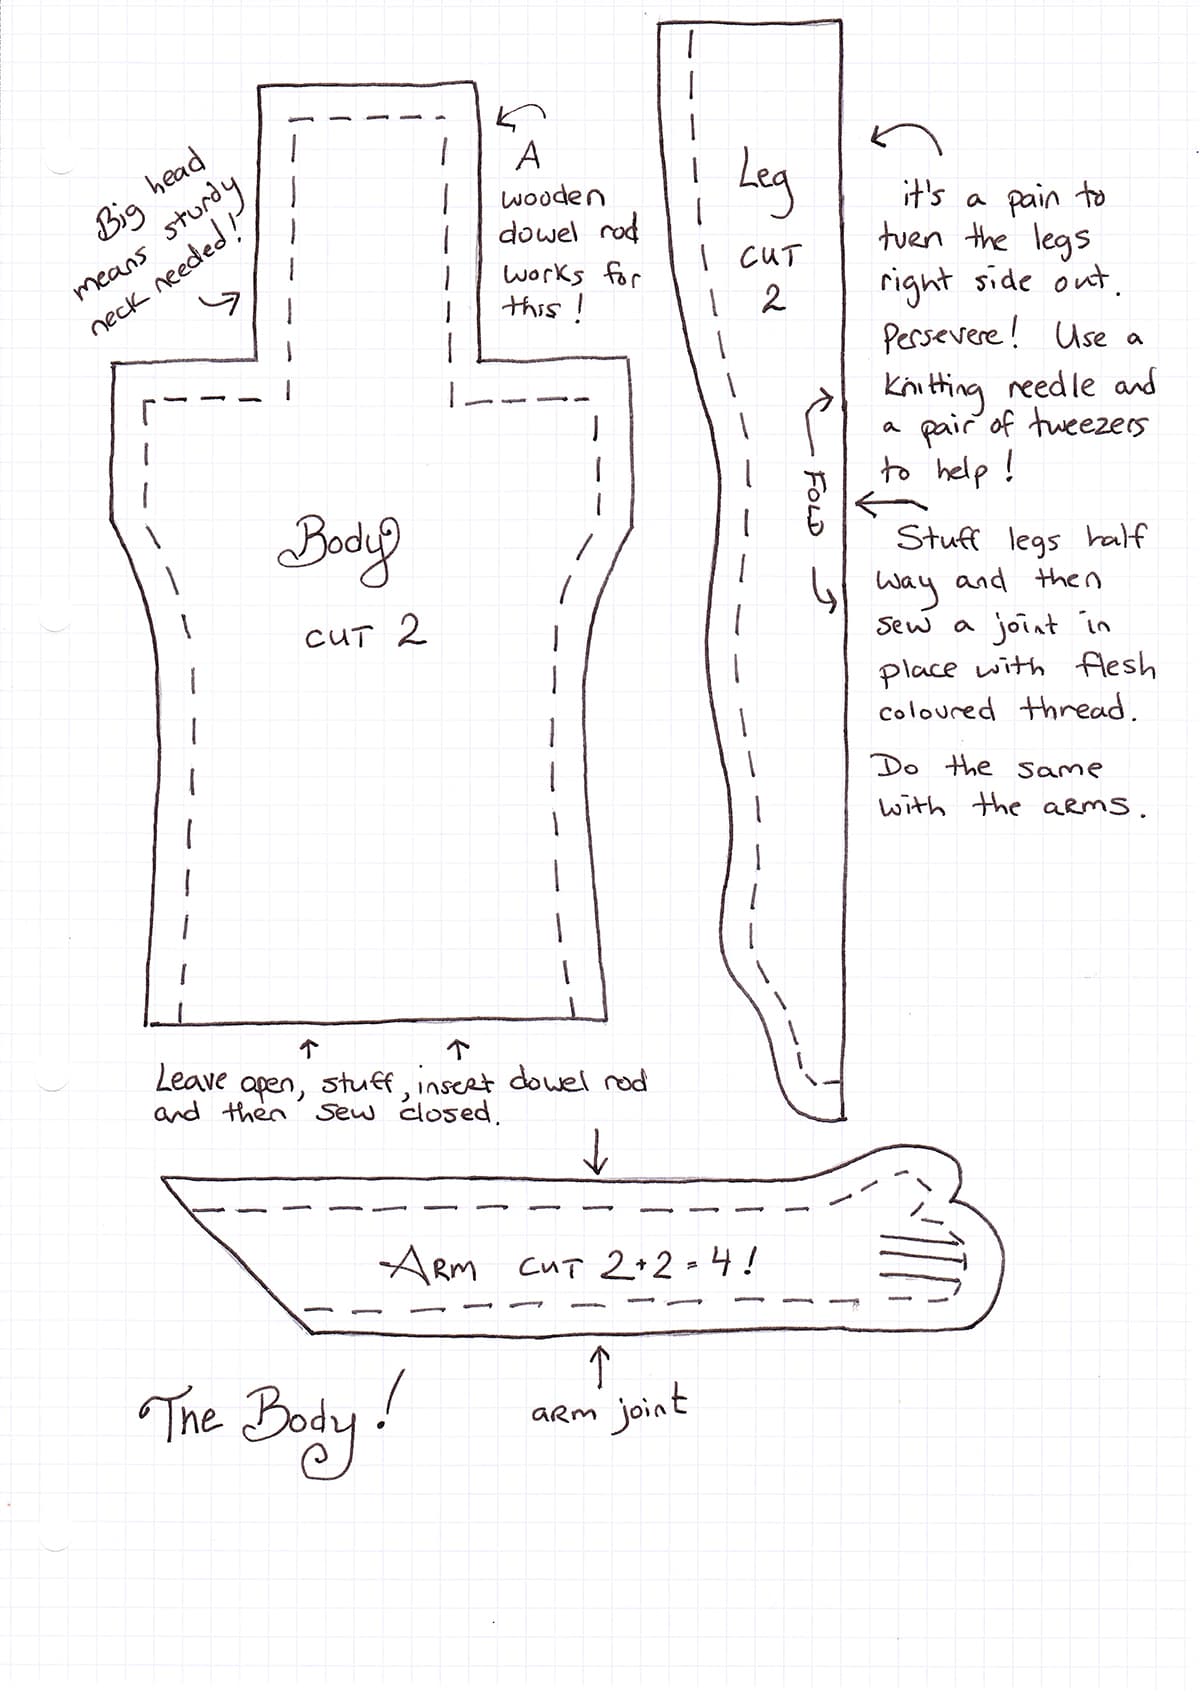 Big head
means sturdy
neck needed!
A
wooden
dowel rod
works for
this!
Leg
CUT
2
it's a pain to
turn the legs
right side out.
Persevere! Use a
knitting needle and
a pair of tweezers
to help!
FOLD
Stuff legs half
way and then
sew a joint in
place with flesh
coloured thread.
Do the same
with the arms.
Body
CUT 2
Leave open, stuff, insert dowel rod
and then sew closed.
ARM CUT 2+2=4!
arm joint
The Body!